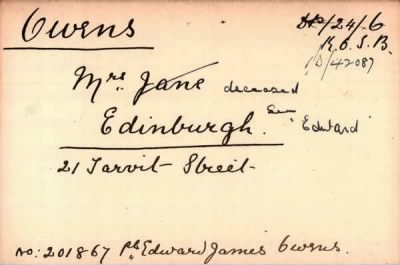 Owens
/24/6
K.O.S.B.
/D/42087
Mrs. Jane deceased
Edinburgh. See "Edward"
21 Tarvit Street
No: 201867 Pte Edward James Owens.